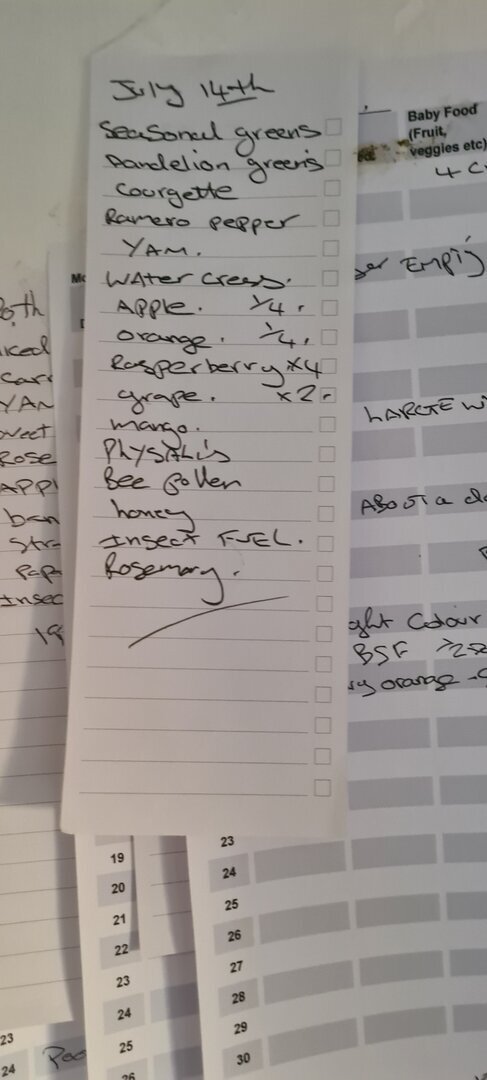 July 14th
Seasonal greens
Dandelion greens
Courgette
Ramero pepper
YAM.
Water cress.
Apple. 1/4.
orange. 1/4.
Rasperberry x4
grape. x2.
mango.
Physalis
Bee pollen
honey
Insect FUEL.
Rosemary.
Baby Food
(Fruit,
veggies etc)
EMPTY
LARGE
ABOUT a
Colour
BSF
orange
YAN
Rose
APPL
ban
Str
Pap
Insec
19
20
21
22
23
24
25
26
23
24
25
26
27
28
29
30
23
24